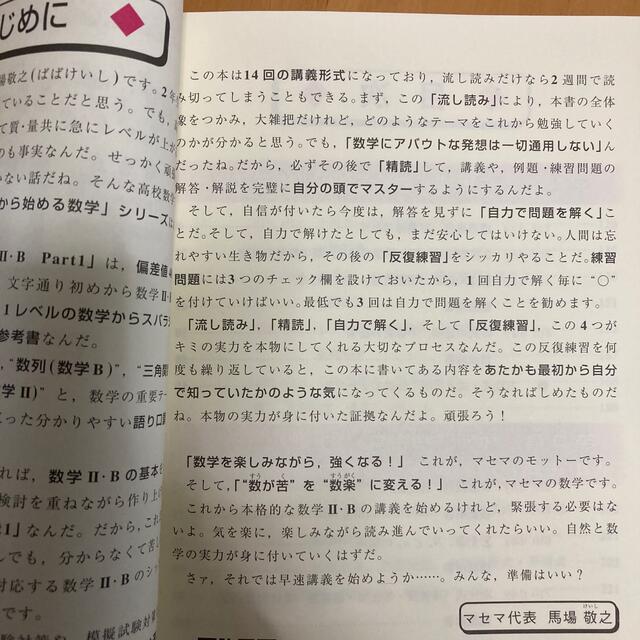 じめに
場敬之(ばばけいし)です。2年
ていることだと思う。でも,
て質・量共に急にレベルが上が
のも事実なんだ。せっかく頑
ない話だね。そんな高校数学
から始める数学」シリーズは
II・B Part1」は, 偏差値4
文字通り初めから数学II・
1レベルの数学からスバラ
参考書なんだ。
,“数列(数学B)”,“三角関
学II)”と, 数学の重要テー
った分かりやすい語り口調
れば, 数学II・Bの基本を
検討を重ねながら作り上げ
t1」なんだ。だから,これ
んでも, 分からなくて苦し
対応する数学II・Bのシッ
です。
模擬試験対策
この本は14回の講義形式になっており, 流し読みだけなら2週間で読
み切ってしまうこともできる。まず, この「流し読み」により, 本書の全体
像をつかみ, 大雑把だけれど, どのようなテーマをこれから勉強していく
のかが分かると思う。でも,「数学にアバウトな発想は一切通用しない」ん
だったね。だから, 必ずその後で「精読」して, 講義や, 例題・練習問題の
解答・解説を完璧に自分の頭でマスターするようにするんだよ。
そして, 自信が付いたら今度は, 解答を見ずに「自力で問題を解く」こ
とだ。そして, 自力で解けたとしても, まだ安心してはいけない。人間は忘
れやすい生き物だから, その後の「反復練習」をシッカリやることだ。練習
問題には3つのチェック欄を設けておいたから, 1回自力で解く毎に“○”
を付けていけばいい。最低でも3回は自力で問題を解くことを勧めます。
「流し読み」,「精読」,「自力で解く」, そして「反復練習」, この4つが
キミの実力を本物にしてくれる大切なプロセスなんだ。この反復練習を何
度も繰り返していると, この本に書いてある内容をあたかも最初から自分
で知っていたかのような気になってくるものだ。そうなればしめたものだ
ね。本物の実力が身に付いた証拠なんだよ。頑張ろう!
「数学を楽しみながら, 強くなる!」 これが, マセマのモットーです。
そして,「“数が苦”を“数楽”に変える!」 これが, マセマの数学です。
これから本格的な数学II・Bの講義を始めるけれど, 緊張する必要はな
いよ。気を楽に, 楽しみながら読み進んでいってくれたらいい。自然と数
学の実力が身に付いていくはずだ。
さァ, それでは早速講義を始めようか……。みんな, 準備はいい?
マセマ代表 馬場 敬之